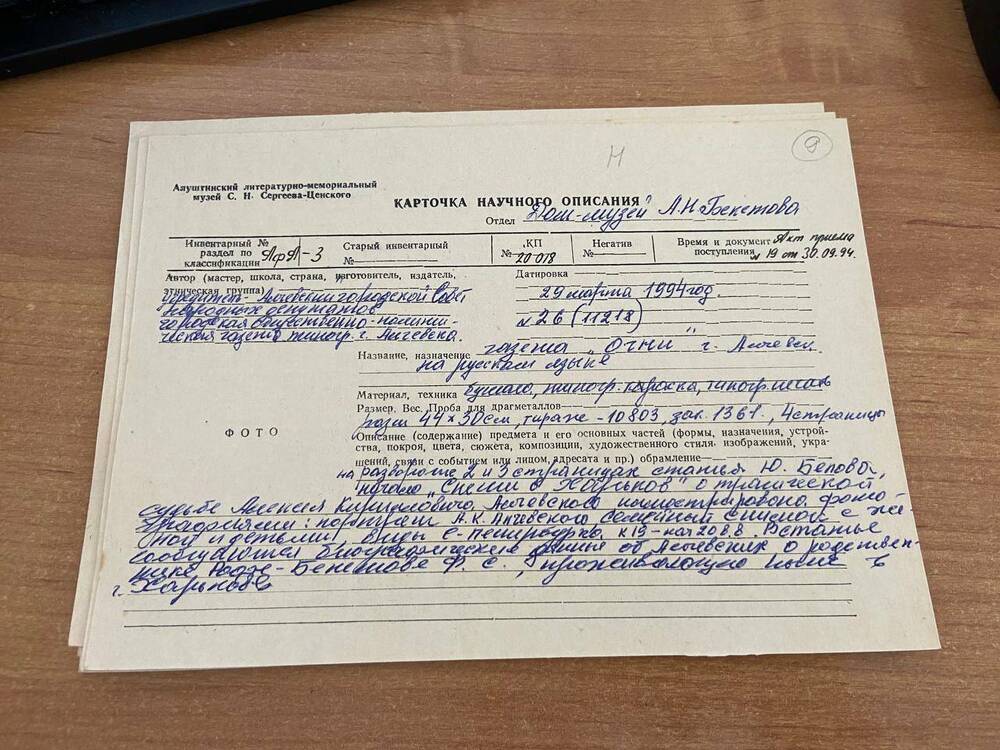 Н
9
Алуштинский литературно-мемориальный
музей С. Н. Сергеева-Ценского
КАРТОЧКА НАУЧНОГО ОПИСАНИЯ
Отдел „Дом-музей А.Н. Бекетова"
Инвентарный №
раздел по
классификации АфА-3
Старый инвентарный
№
КП
№ 20 018
Негатив
№
Время и документ Акт приема
поступления № 19 от 30.09.94.
Автор (мастер, школа, страна, изготовитель, издатель,
этническая группа)
учредитель - Алчевский городской Совет
народных депутатов
городская общественно-полити-
ческая газета типогр. г. Алчевска.
Датировка
29 марта 1994 год.
№ 26 (11218)
Название, назначение газета „Огни" г. Алчевск.
на русском языке
Материал, техника бумага, типогр. краска, типогр. печать
Размер. Вес. Проба для драгметаллов
разм 44 × 30 см, тираж - 10803, зак. 1367., 4 страницы
ФОТО
Описание (содержание) предмета и его основных частей (формы, назначения, устрой-
ства, покроя, цвета, сюжета, композиции, художественного стиля изображений, укра-
шений, связи с событием или лицом, адресата и пр.) обрамление
на развороте 2 и 3 страницах статья Ю. Белова,
начало „Спеши в Харьков" о трагической
судьбе Алексея Кирилловича Алчевского иллюстрирована фото-
графиями: портрет А.К. Алчевского семейный снимок с же-
ной и детьми виды С-Петербурга к 19-нач 20 в.в. В статье
сообщаются биографические данные об Алчевских о родствен-
нике Бекетове Ф. С., проживающих ныне в
г. Харькове